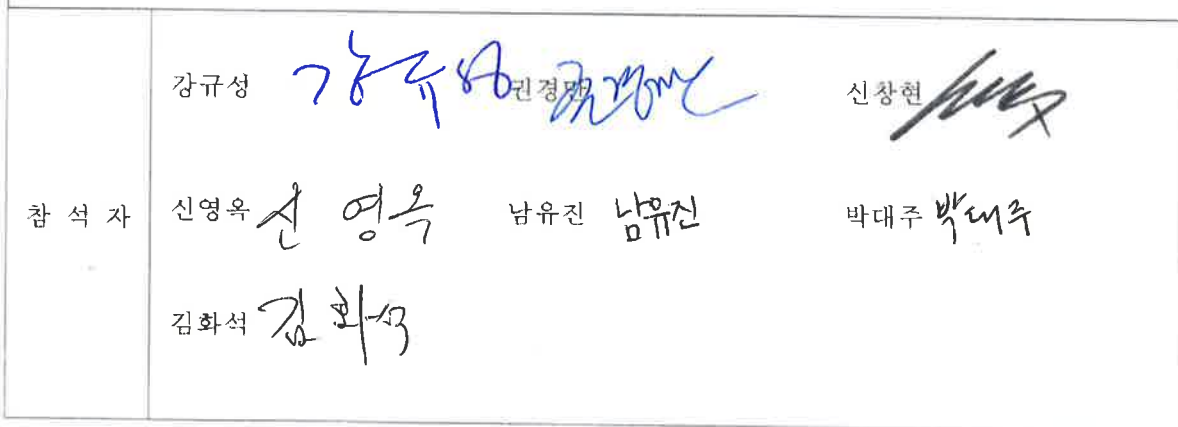 강규성 강규성 권경만 권경만 신창현
참 석 자 신영옥 신 영옥 남유진 남유진 박대주 박대주
김화석 김화석